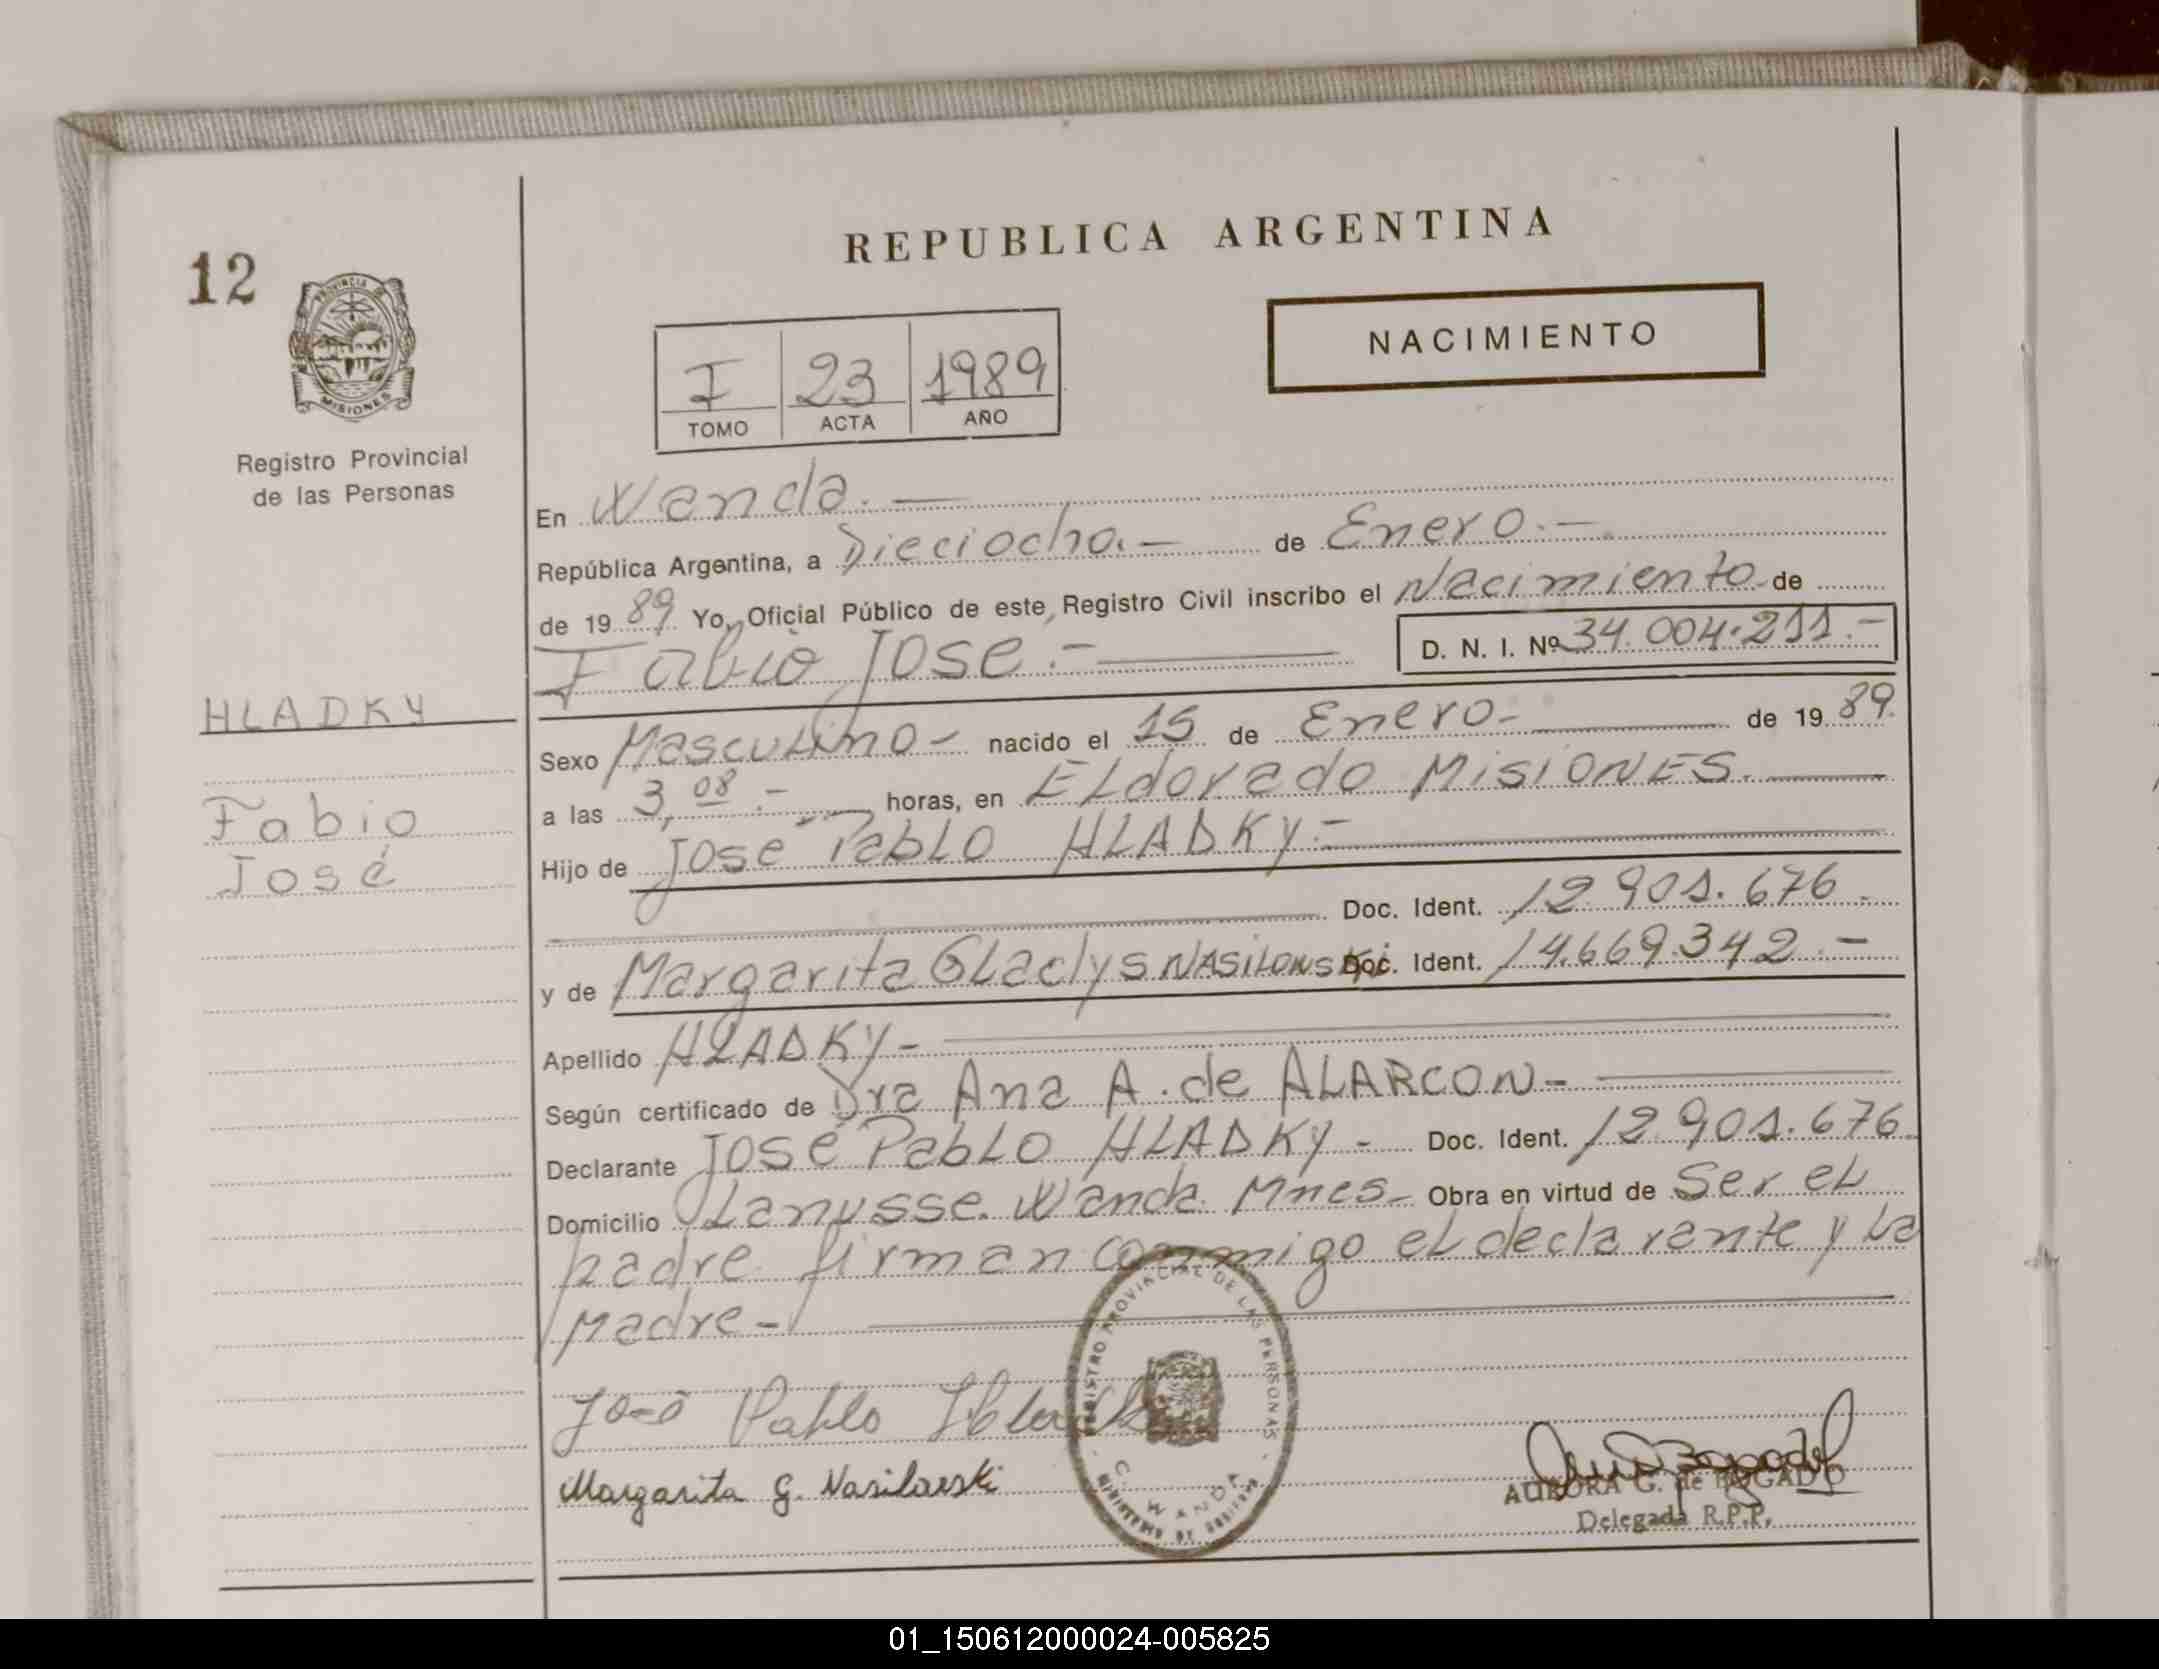 12
PROVINCIA DE
MISIONES
Registro Provincial
de las Personas
HLADKY
Fabio
José
REPUBLICA ARGENTINA
NACIMIENTO
I 23 1989
TOMO ACTA AÑO
En Wanda.—
República Argentina, a Dieciocho.— de Enero.—
de 1989 Yo, Oficial Público de este Registro Civil inscribo el Nacimiento de
Fabio José.— D. N. I. Nº 34.004.211.—
Sexo Masculino— nacido el 15 de Enero.— de 1989.
a las 3,08.— horas, en ELdorado MisiONES.
Hijo de José PabLO HLADKY.—
Doc. Ident. 12.901.676.
y de Margarita GLadys NASiLOWSKi Doc. Ident. 14.669.342.—
Apellido HLADKY—
Según certificado de Dra Ana A. de ALARCON—
Declarante José PabLO HLADKY— Doc. Ident. 12.901.676.
Domicilio Lanusse. Wanda. Mnes— Obra en virtud de Ser eL
padre firman conmigo eL declarante y La
Madre—
José Pablo Hladky
Margarita G. Nasiloski
REGISTRO PROVINCIAL DE LAS PERSONAS
WANDA
MINISTERIO DE GOBIERNO
AURORA G. de BOGADO
Delegada R.P.P.
01_150612000024-005825